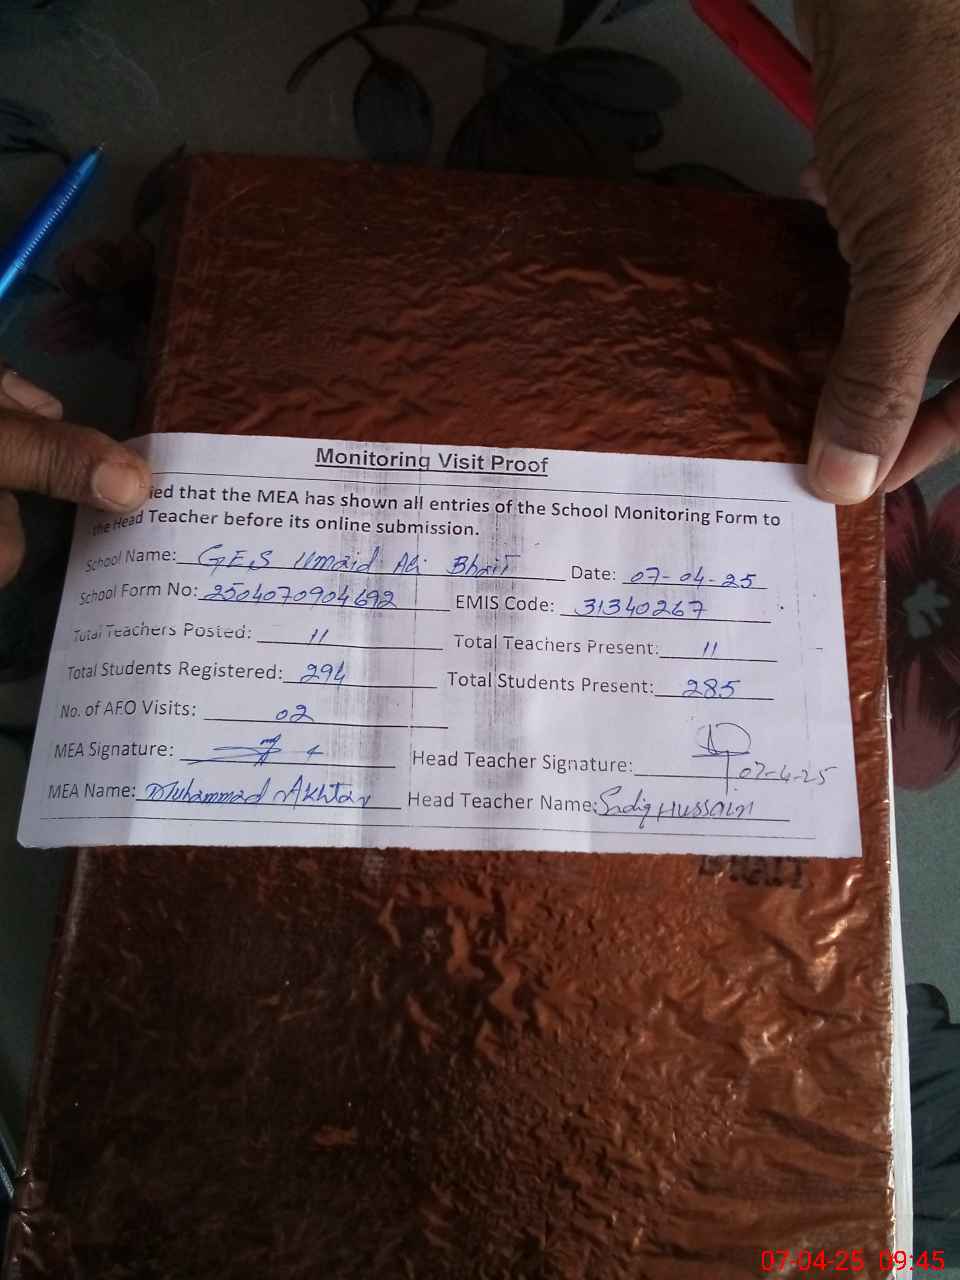 Monitoring Visit Proof
ied that the MEA has shown all entries of the School Monitoring Form to
the Head Teacher before its online submission.
School Name: GES Umaid Ali Bhait Date: 07-04-25
School Form No: 2504070904692 EMIS Code: 31340267
Total Teachers Posted: 11 Total Teachers Present: 11
Total Students Registered: 294 Total Students Present: 285
No. of AEO Visits: 02
MEA Signature: Head Teacher Signature: 07-4-25
MEA Name: Muhammad Akhtar Head Teacher Name: Sadiq Hussain
07-04-25 09:45